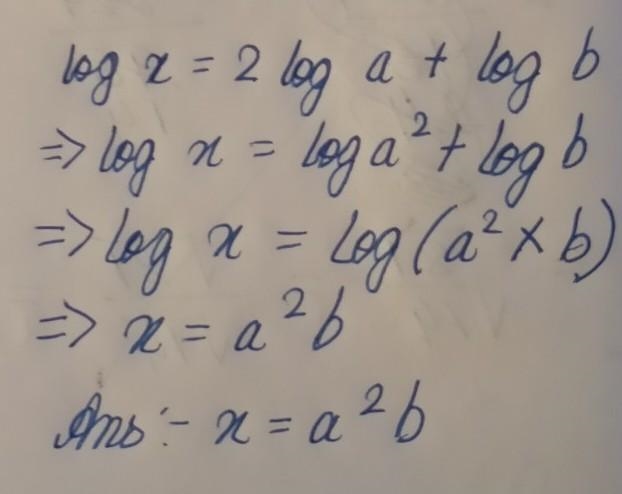 log x = 2 log a + log b
=> log x = log a² + log b
=> log x = log(a² × b)
=> x = a²b
Ans:- x = a²b